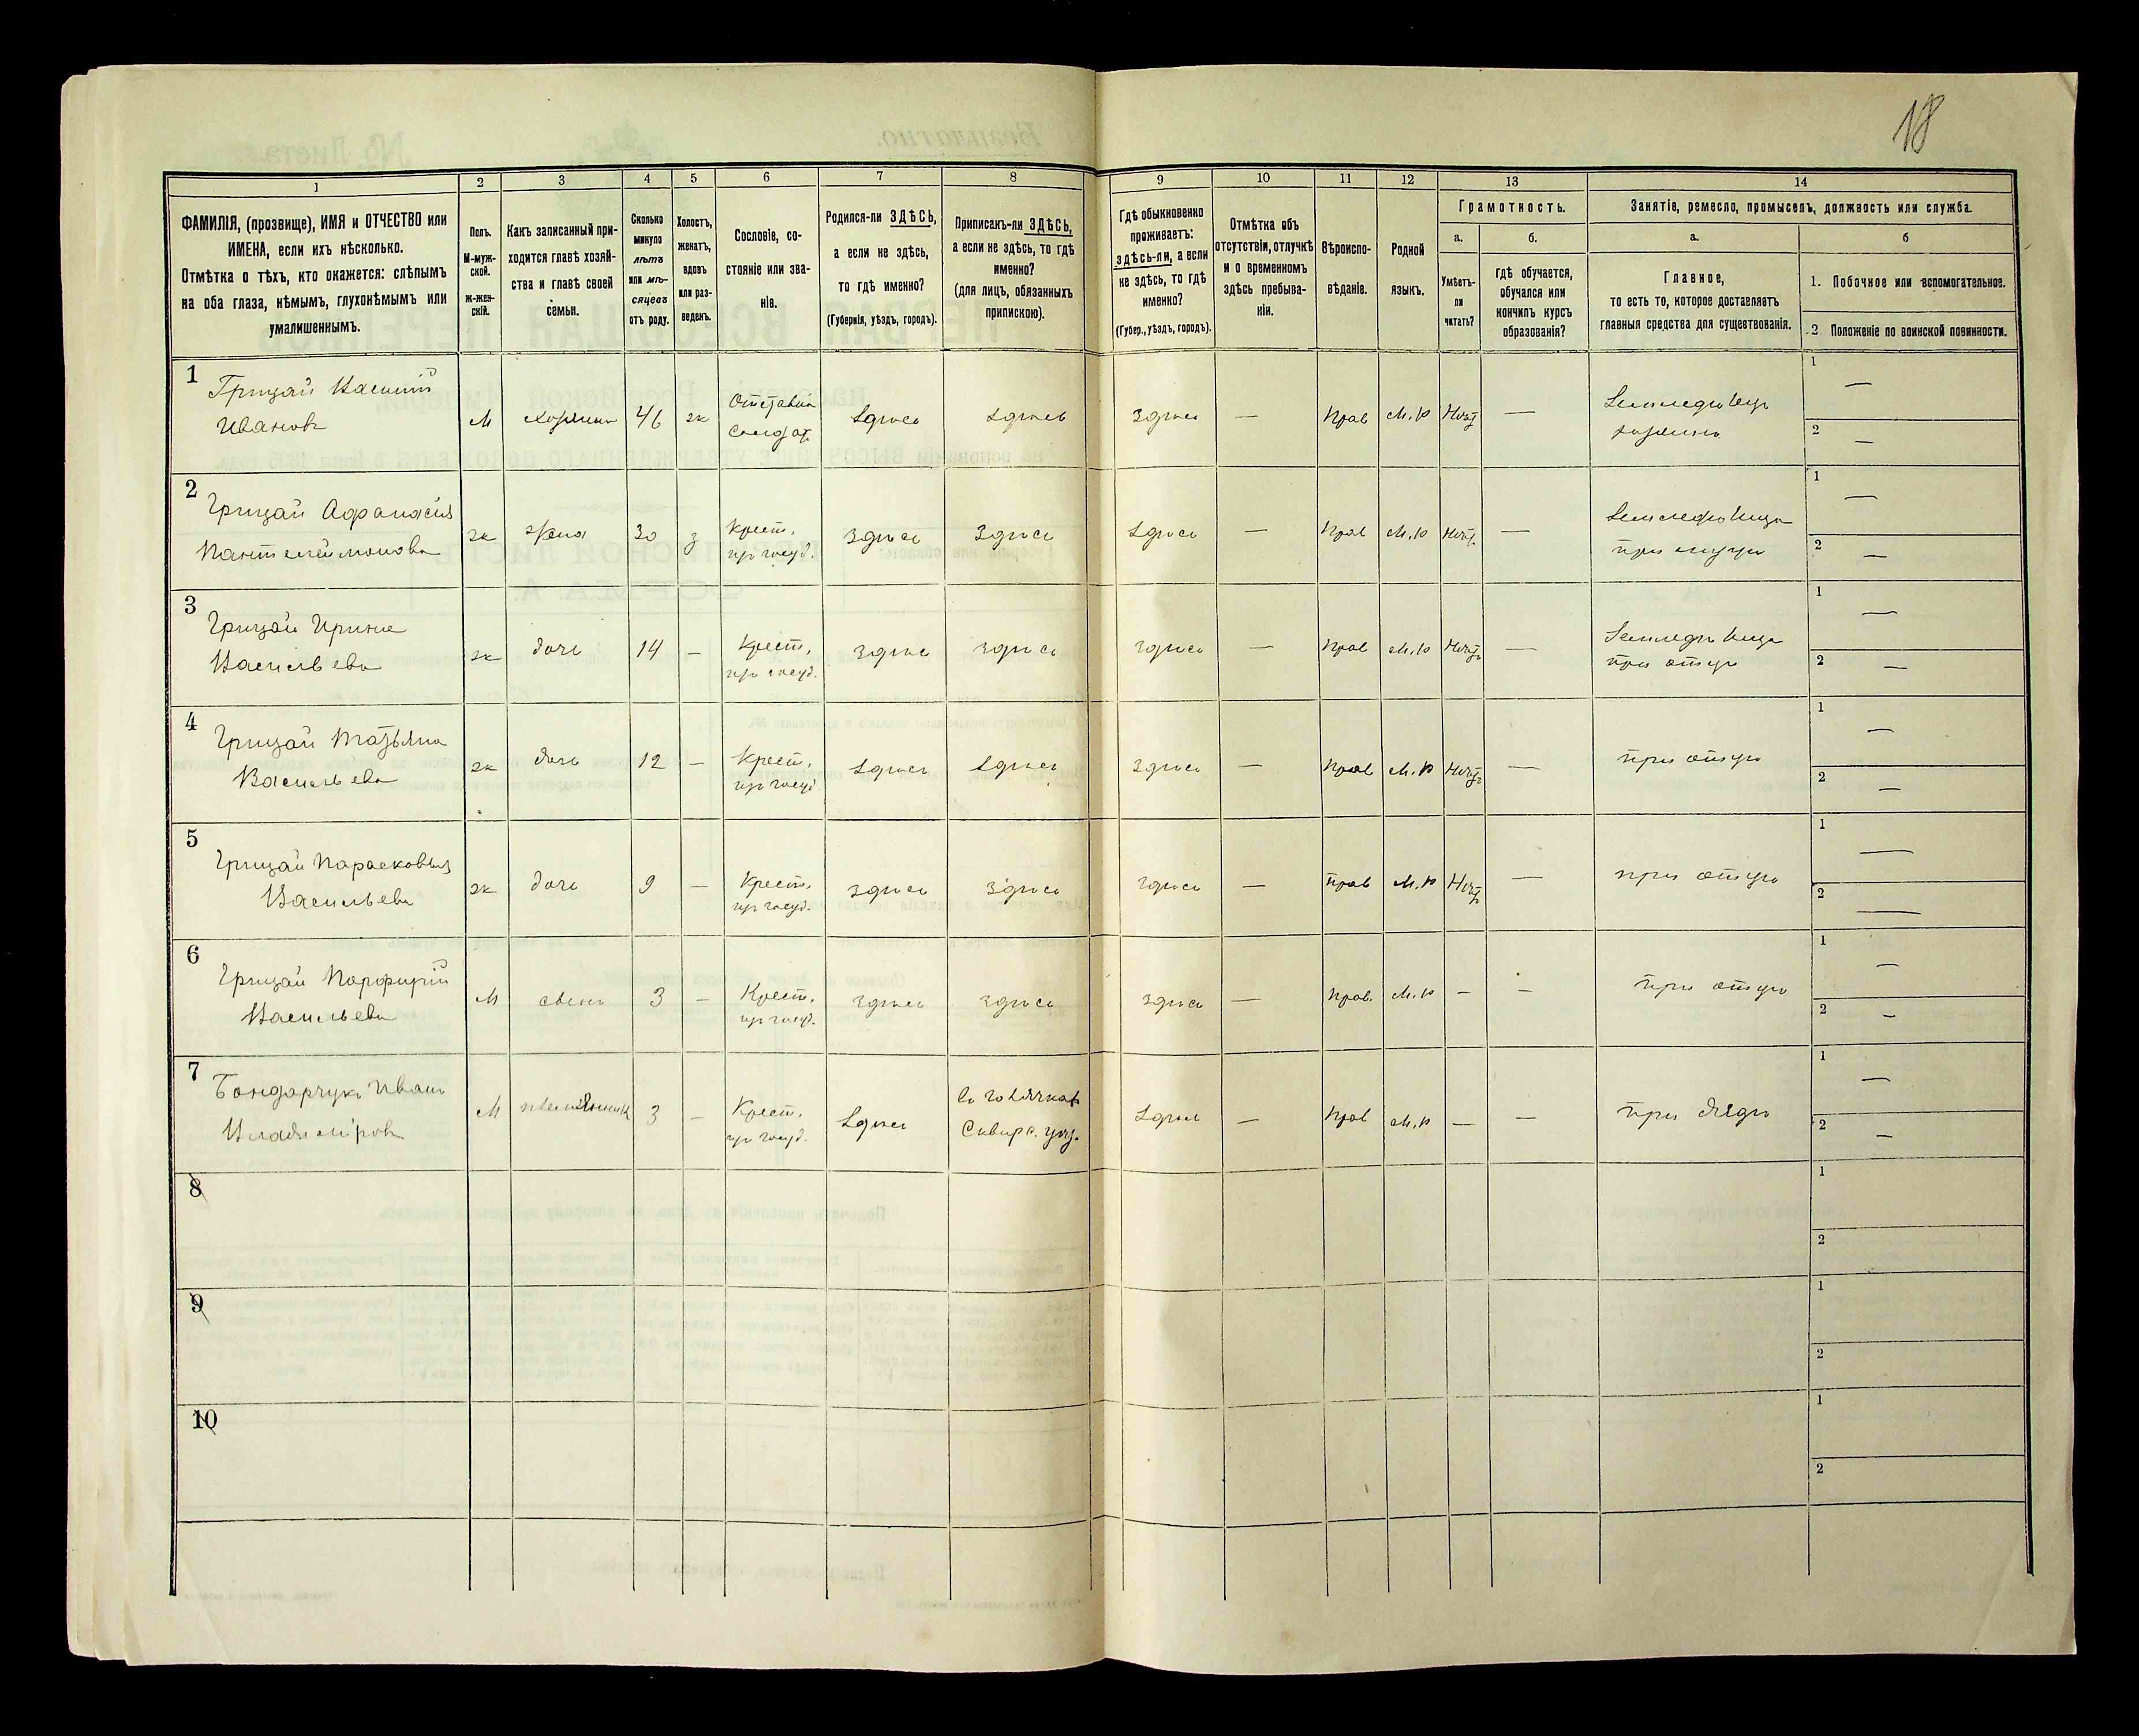 18
1 2 3 4 5 6 7 8 9 10 11 12 13 14
ФАМИЛІЯ, (прозвище), ИМЯ и ОТЧЕСТВО или
ИМЕНА, если ихъ нѣсколько.
Отмѣтка о тѣхъ, кто окажется: слѣпымъ
на оба глаза, нѣмымъ, глухонѣмымъ или
умалишеннымъ.
Полъ.
М-муж-
ской.
ж-жен-
скій.
Какъ записанный при-
ходится главѣ хозяй-
ства и главѣ своей
семьи.
Сколько
минуло
лѣтъ
или мѣ-
сяцевъ
отъ роду.
Холостъ,
женатъ,
вдовъ
или раз-
веденъ.
Сословіе, со-
стояніе или зва-
ніе.
Родился-ли ЗДѢСЬ,
а если не здѣсь,
то гдѣ именно?
(Губернія, уѣздъ, городъ).
Приписанъ-ли ЗДѢСЬ,
а если не здѣсь, то гдѣ
именно?
(для лицъ, обязанныхъ
припискою).
Гдѣ обыкновенно
проживаетъ:
здѣсь-ли, а если
не здѣсь, то гдѣ
именно?
(Губер., уѣздъ, городъ).
Отмѣтка объ
отсутствіи, отлучкѣ
и о временномъ
здѣсь пребыва-
ніи.
Вѣроиспо-
вѣданіе.
Родной
языкъ.
Грамотность.
а.
Умѣетъ-
ли
читать?
б.
гдѣ обучается,
обучался или
кончилъ курсъ
образованія?
Занятіе, ремесло, промыселъ, должность или служба.
а.
Главное,
то есть то, которое доставляетъ
главныя средства для существованія.
б
1. Побочное или вспомогательное.
2 Положеніе по воинской повинности.
1 Грицай Василій
Ивановъ
М хозяинъ 46 ж Отставной
Солдат здѣсь здѣсь здѣсь — прав М.р Нѣтъ — Земледѣлецъ
хозяинъ 1 — 2 —
2 Грицай Афанасія
Пантелеймонова
ж жена 30 з Крест.
здѣсь здѣсь здѣсь — прав М.р Нѣтъ — 1 — 2 —
3 Грицай Ирина
Васильева
ж дочь 14 — Крест.
здѣсь здѣсь здѣсь — прав М.р Нѣтъ —
при отцѣ 1 — 2 —
4 Грицай Татьяна
Васильева
ж дочь 12 — Крест.
здѣсь здѣсь здѣсь — прав М.р Нѣтъ — при отцѣ 1 — 2 —
5 Грицай Парасковья
Васильева
ж дочь 9 — Крест.
здѣсь здѣсь здѣсь — прав М.р Нѣтъ — при отцѣ 1 — 2 —
6 Грицай Порфирій
Васильевъ
М сынъ 3 — Крест.
здѣсь здѣсь здѣсь — прав. М.р — — при отцѣ 1 — 2 —
7 Бондарчукъ Иванъ
Владиміровъ
М племянникъ 3 — Крест.
здѣсь
Сквирс. уѣз. здѣсь — прав М.р — — при дядѣ 1 — 2 —
8 1 2
9 1 2
10 1 2